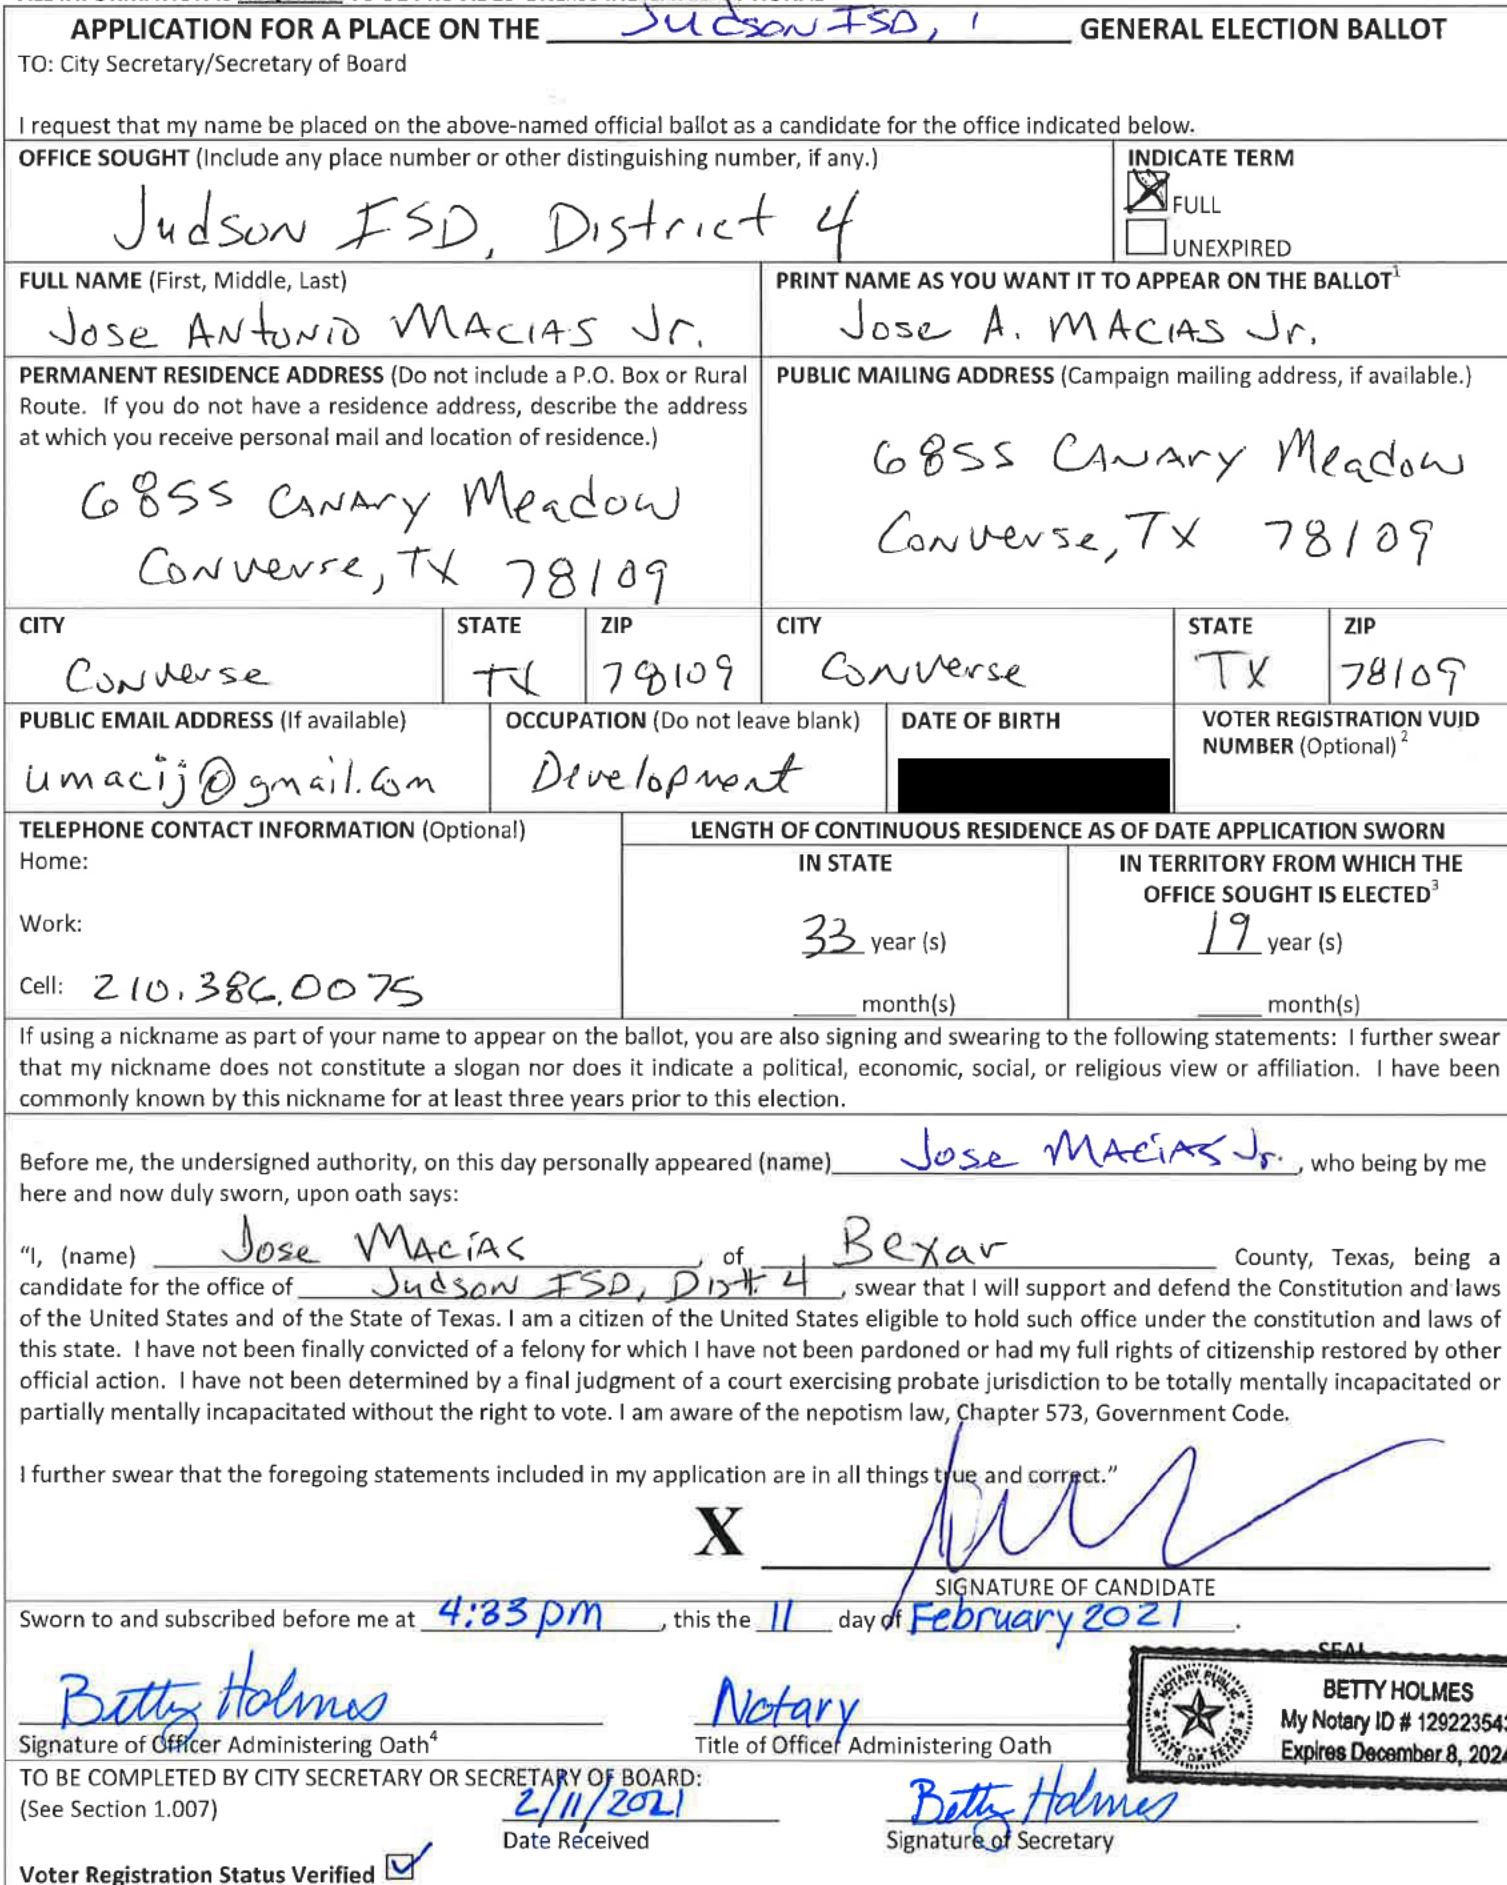 APPLICATION FOR A PLACE ON THE Judson ISD, GENERAL ELECTION BALLOT
TO: City Secretary/Secretary of Board
I request that my name be placed on the above-named official ballot as a candidate for the office indicated below.
OFFICE SOUGHT (Include any place number or other distinguishing number, if any.)
Judson ISD, District 4
INDICATE TERM
FULL
UNEXPIRED
FULL NAME (First, Middle, Last)
Jose Antonio Macias Jr.
PRINT NAME AS YOU WANT IT TO APPEAR ON THE BALLOT1
Jose A. Macias Jr.
PERMANENT RESIDENCE ADDRESS (Do not include a P.O. Box or Rural
Route. If you do not have a residence address, describe the address
at which you receive personal mail and location of residence.)
6855 Canary Meadow
Converse, TX 78109
PUBLIC MAILING ADDRESS (Campaign mailing address, if available.)
6855 Canary Meadow
Converse, TX 78109
CITY STATE ZIP CITY STATE ZIP
Converse TX 78109 Converse TX 78109
PUBLIC EMAIL ADDRESS (If available)
umacij@gmail.com
OCCUPATION (Do not leave blank)
Development
DATE OF BIRTH
VOTER REGISTRATION VUID
NUMBER (Optional) 2
TELEPHONE CONTACT INFORMATION (Optional)
Home:
Work:
Cell: 210.386.0075
LENGTH OF CONTINUOUS RESIDENCE AS OF DATE APPLICATION SWORN
IN STATE
33 year (s)
month(s)
IN TERRITORY FROM WHICH THE
OFFICE SOUGHT IS ELECTED3
19 year (s)
month(s)
If using a nickname as part of your name to appear on the ballot, you are also signing and swearing to the following statements: I further swear
that my nickname does not constitute a slogan nor does it indicate a political, economic, social, or religious view or affiliation. I have been
commonly known by this nickname for at least three years prior to this election.
Before me, the undersigned authority, on this day personally appeared (name) Jose Macias Jr. , who being by me
here and now duly sworn, upon oath says:
"I, (name) Jose Macias , of Bexar County, Texas, being a
candidate for the office of Judson ISD, Dist. 4 , swear that I will support and defend the Constitution and laws
of the United States and of the State of Texas. I am a citizen of the United States eligible to hold such office under the constitution and laws of
this state. I have not been finally convicted of a felony for which I have not been pardoned or had my full rights of citizenship restored by other
official action. I have not been determined by a final judgment of a court exercising probate jurisdiction to be totally mentally incapacitated or
partially mentally incapacitated without the right to vote. I am aware of the nepotism law, Chapter 573, Government Code.
I further swear that the foregoing statements included in my application are in all things true and correct."
X
SIGNATURE OF CANDIDATE
Sworn to and subscribed before me at 4:33 pm , this the 11 day of February 2021 .
SEAL
Betty Holmes
Signature of Officer Administering Oath4
Notary
Title of Officer Administering Oath
NOTARY PUBLIC
STATE OF TEXAS
BETTY HOLMES
My Notary ID # 12922354
Expires December 8, 2024
TO BE COMPLETED BY CITY SECRETARY OR SECRETARY OF BOARD:
(See Section 1.007)
2/11/2021
Date Received
Betty Holmes
Signature of Secretary
Voter Registration Status Verified